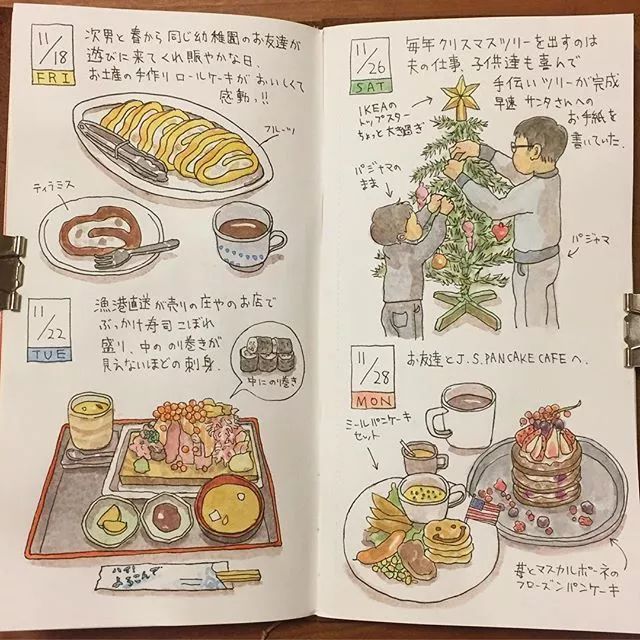 11/18
FRI
次男と春から同じ幼稚園のお友達が
遊びに来てくれ賑やかな日、
お土産の手作りロールケーキがおいしくて
感動っ!!
フルーツ
ティラミス
11/22
TUE
漁港直送が売りの庄やのお店で
ぶっかけ寿司こぼれ
盛り、中ののり巻きが
見えないほどの刺身。
中にのり巻き
ハイ!よろこんで
11/26
SAT
毎年クリスマスツリーを出すのは
夫の仕事、子供達も喜んで
手伝いツリーが完成
早速サンタさんへの
お手紙を
書いていた。
IKEAの
トップスター
ちょっと大き過ぎ
パジャマの
まま
パジャマ
11/28
MON
お友達とJ.S.PANCAKE CAFEへ。
ミールパンケーキ
セット
苺とマスカルポーネの
フローズンパンケーキ